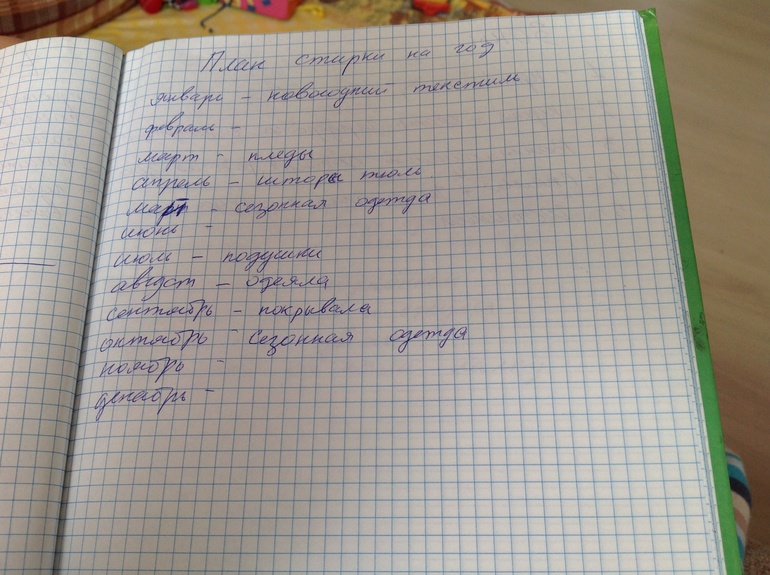 План стирки на год
январь - новогодний текстиль
февраль -
март - пледы
апрель - шторы тюль
март - сезонная одежда
июнь -
июль - подушки
август - одеяла
сентябрь - покрывала
октябрь - сезонная одежда
ноябрь -
декабрь -